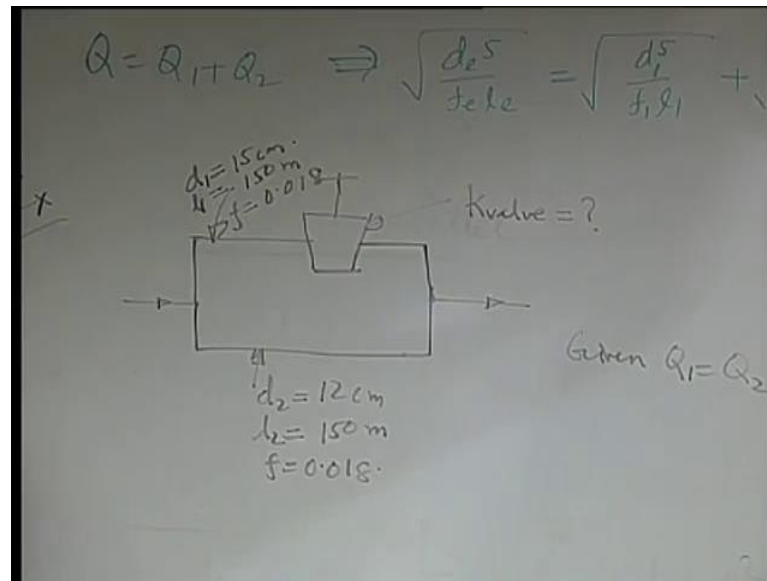 Q = Q₁ + Q₂ ⇒ √(dₑ⁵ / fₑ lₑ) = √(d₁⁵ / f₁ l₁) + √
d₁ = 15 cm.
l₁ = 150 m
f = 0.018
x
Kvalve = ?
Given Q₁ = Q₂
d₂ = 12 cm
l₂ = 150 m
f = 0.018.